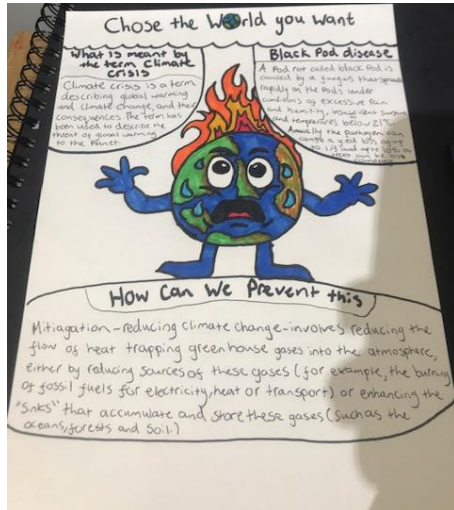 Chose the World you want
What is meant by
the term Climate
crisis
Climate crisis is a term
describing global warming
and climate change, and their
consequences. The term has
been used to describe the
threat of global warming
to the Planet.
Black Pod disease
A Pod rot called black Pod is
caused by a fungus that spreads
rapidly on the Pods under
conditions of excessive rain
and humidity, insufficient sunshine
and temperatures below 21°C
Annually the pathogen can
cause a yield loss
to 1/3 and up to 10% of
trees can be lost
completely
How Can We Prevent this
Mitiagation-reducing climate change-involves reducing the
flow of heat trapping greenhouse gases into the atmosphere,
either by reducing sources of these gases (for example, the burning
of fossil fuels for electricity, heat or transport) or enhancing the
"sinks" that accumulate and store these gases (such as the
oceans, forests and soil.)